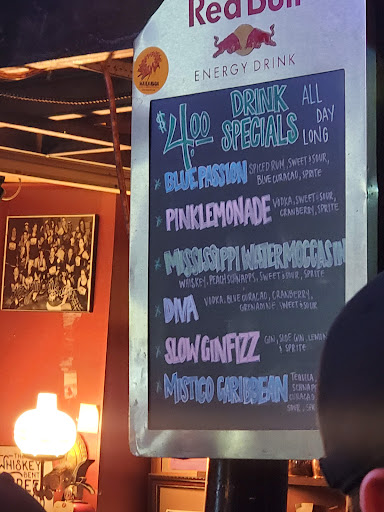 Red Bull
ENERGY DRINK
$4.00 DRINK SPECIALS ALL DAY LONG
* BLUE PASSION SPICED RUM, SWEET & SOUR,
BLUE CURACAO, SPRITE
* PINK LEMONADE VODKA, SWEET & SOUR,
CRANBERRY, SPRITE
* MISSISSIPPI WATER MOCCASIN
WHISKEY, PEACH SCHNAPPS, SWEET & SOUR, SPRITE
* DIVA VODKA, BLUE CURACAO, CRANBERRY,
GRENADINE, SWEET & SOUR
* SLOW GIN FIZZ GIN, SLOE GIN, LEMON
& SPRITE
* MISTICO CARIBBEAN TEQUILA,
SCHNAPP
CURACAO
SOUR, SPR
THE
WHISKEY
BENT